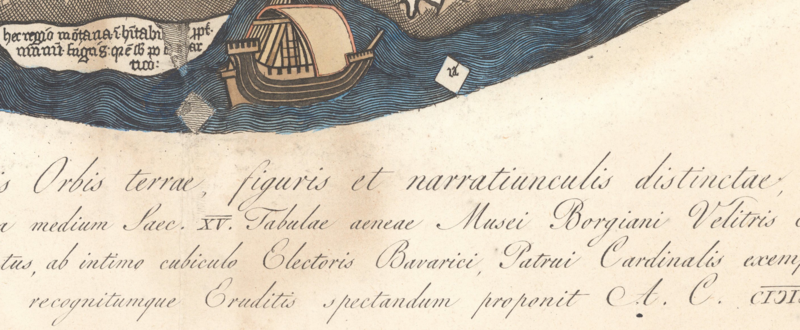 hec regio
is Orbis terrae, figuris et narratiunculis distinctae,
a medium Saec. XV. Tabulae aeneae Musei Borgiani Velitris c
tus, ab intimo cubiculo Electoris Bavarici, Patrui Cardinalis exemp
recognitumque Eruditis spectandum proponit A. C. CIƆIƆ